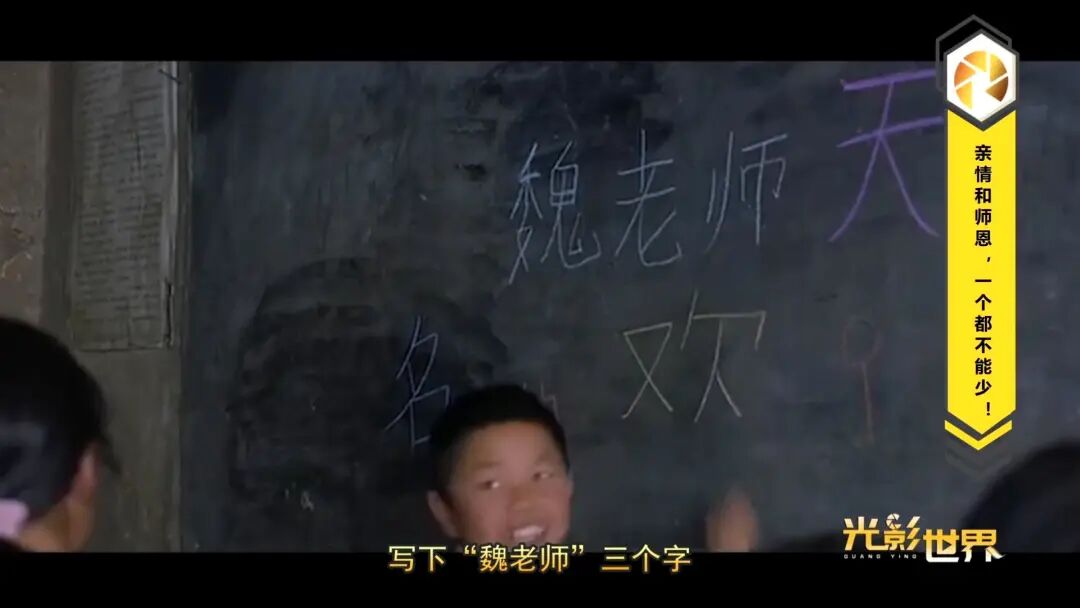 魏老师
天
名
欢
亲情和师恩，一个都不能少！
写下“魏老师”三个字
光影世界
GUANG YING